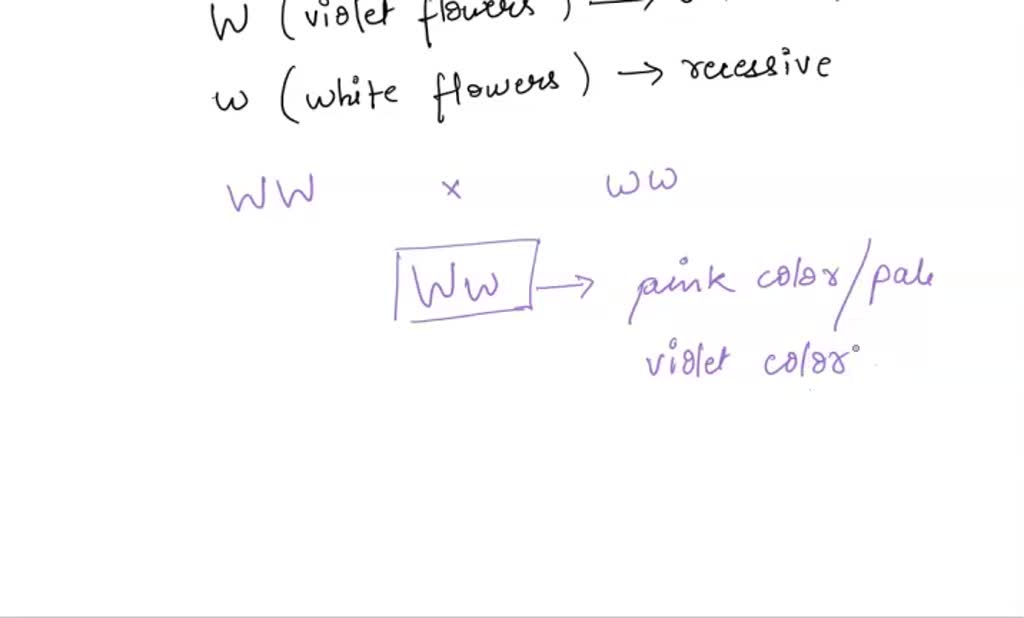 W (violet flowers) →
w (white flowers) → recessive
WW x ww
Ww → pink color/pale
violet color